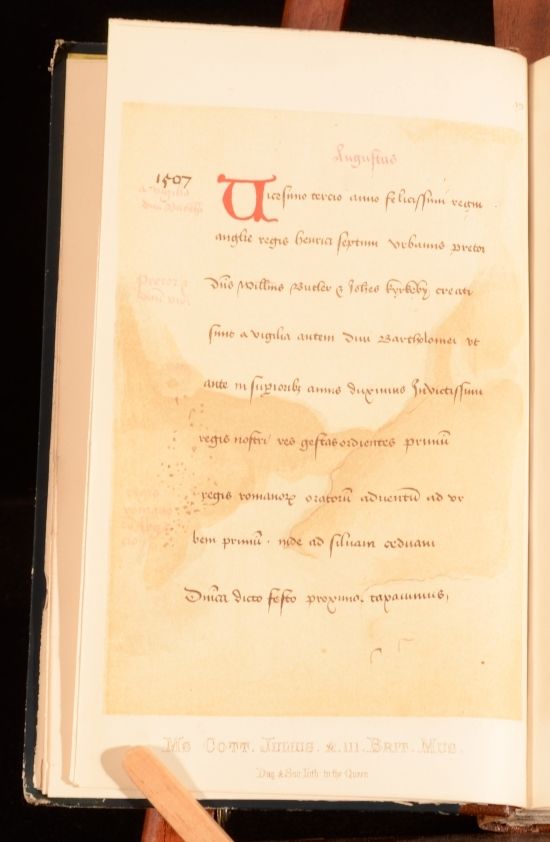 Augustus
1507
Uicesimo tercio anno felicissimi regni
anglie regis henrici septimi vrbanus pretor
dn̄s Willm̄s Butler & Joh̄es kyrkeby creati
sunt a vigilia autem diui Bartholomei vt
ante in suꝑioribꝫ annis diximus Inuictissimi
regis nostri res gestas ordientes primū
regis romanoꝝ oratorū aduentū ad vr
bem primū . inde ad siluam
Dn̄ica dicto festo proxima,
Ms COTT. JULIUS. A. III. BRIT. MUS.
Day & Son Lith. to the Queen